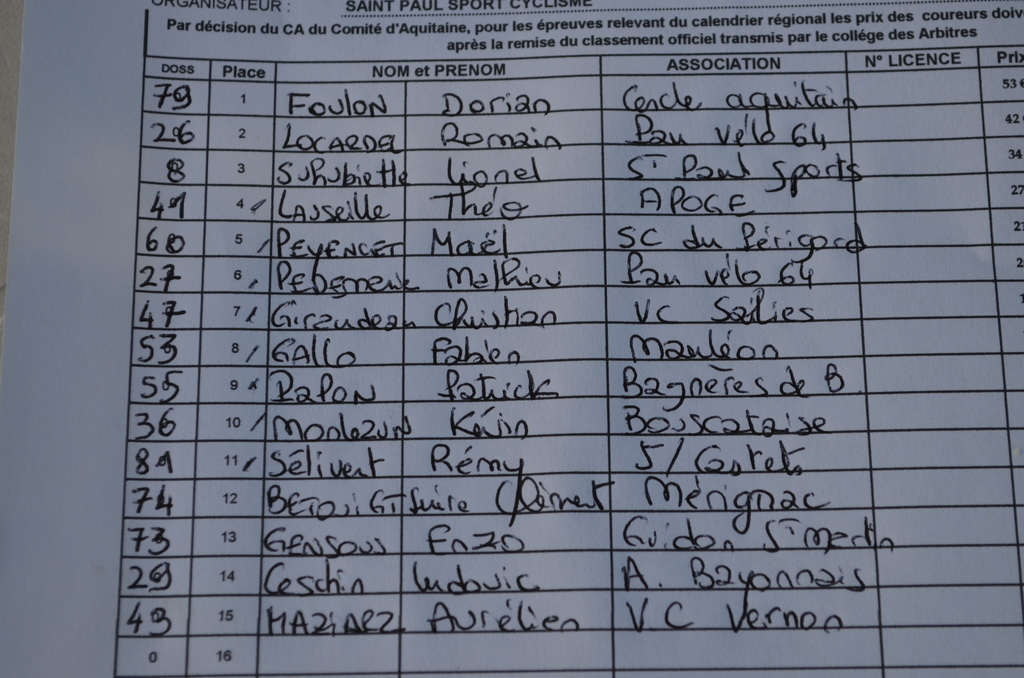 ORGANISATEUR : SAINT PAUL SPORT CYCLISME
Par décision du CA du Comité d'Aquitaine, pour les épreuves relevant du calendrier régional les prix des coureurs doiv
après la remise du classement officiel transmis par le collége des Arbitres
DOSS Place NOM et PRENOM ASSOCIATION N° LICENCE Prix
79 1 FOULON Dorian Cercle aquitain 53 €
26 2 Romain Pau vélo 64 42
8 3 SuRubiette Lionel St Paul Sports 34
41 4 LAUSEILLE Théo APOGE 27
60 5 PEYENCET Maël SC du Périgord 21
27 6 Mathieu Pau vélo 64 2
47 7 Giraudeau Christian VC Salies 1
53 8 GALLO Fabien Mauléon
55 9 PAPON Patrick Bagnères de B
36 10 Monlezun Kévin Bouscataise
81 11 Sélivert Rémy
74 12 Clément Mérignac
73 13 GENSOUS Enzo Guidon St Martin
29 14 Ceschin Ludovic A. Bayonnais
43 15 Aurélien V C Vernon
0 16